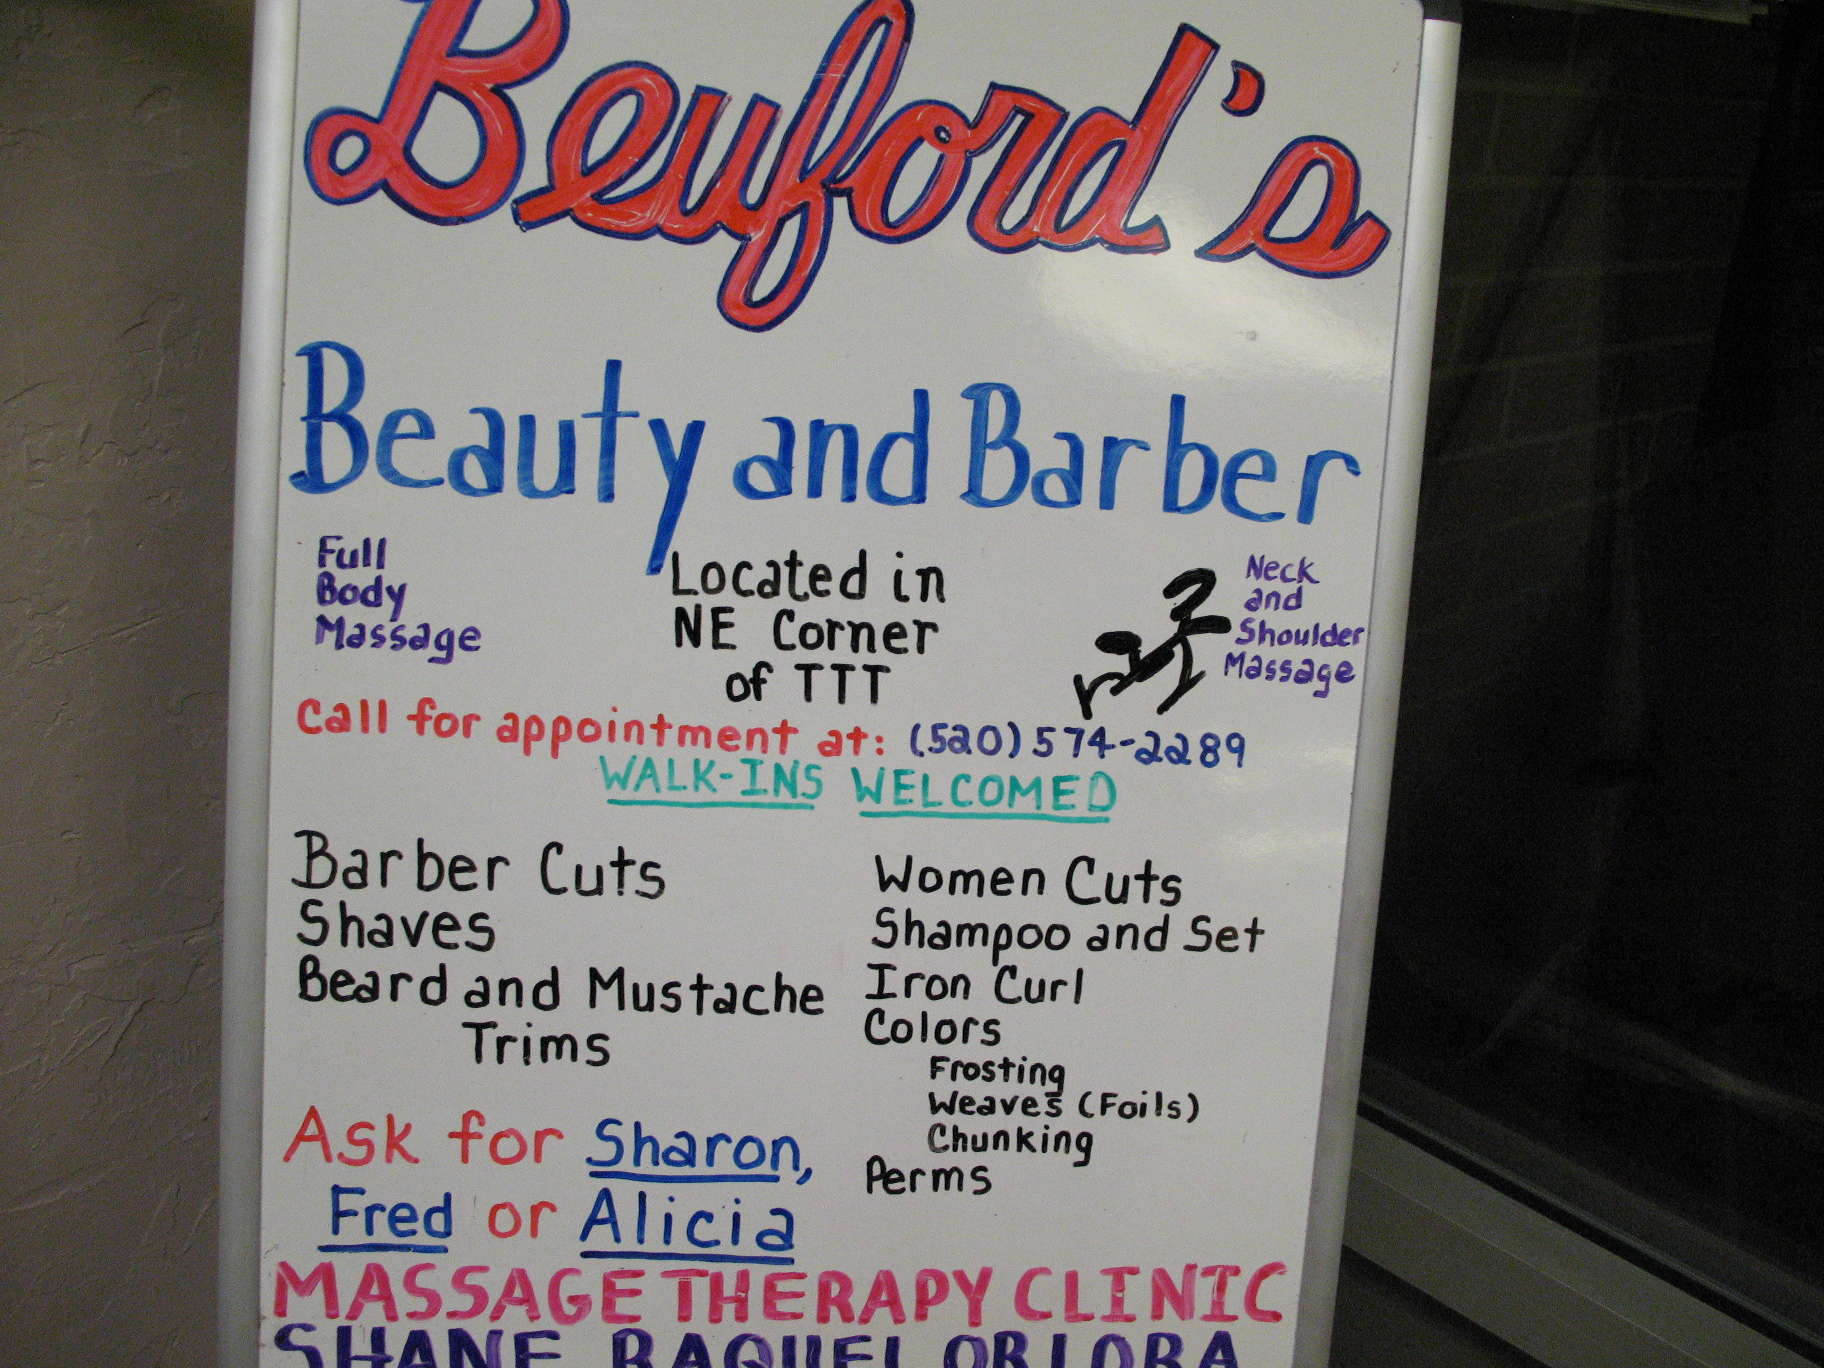 Beuford's
Beauty and Barber
Full
Body
Massage
Located in
NE Corner
of TTT
Neck
and
Shoulder
Massage
Call for appointment at: (520) 574-2289
WALK-INS WELCOMED
Barber Cuts
Shaves
Beard and Mustache
Trims
Women Cuts
Shampoo and Set
Iron Curl
Colors
Frosting
Weaves (Foils)
Chunking
Perms
Ask for Sharon,
Fred or Alicia
MASSAGE THERAPY CLINIC
SHANE RAQUEL OR LORA